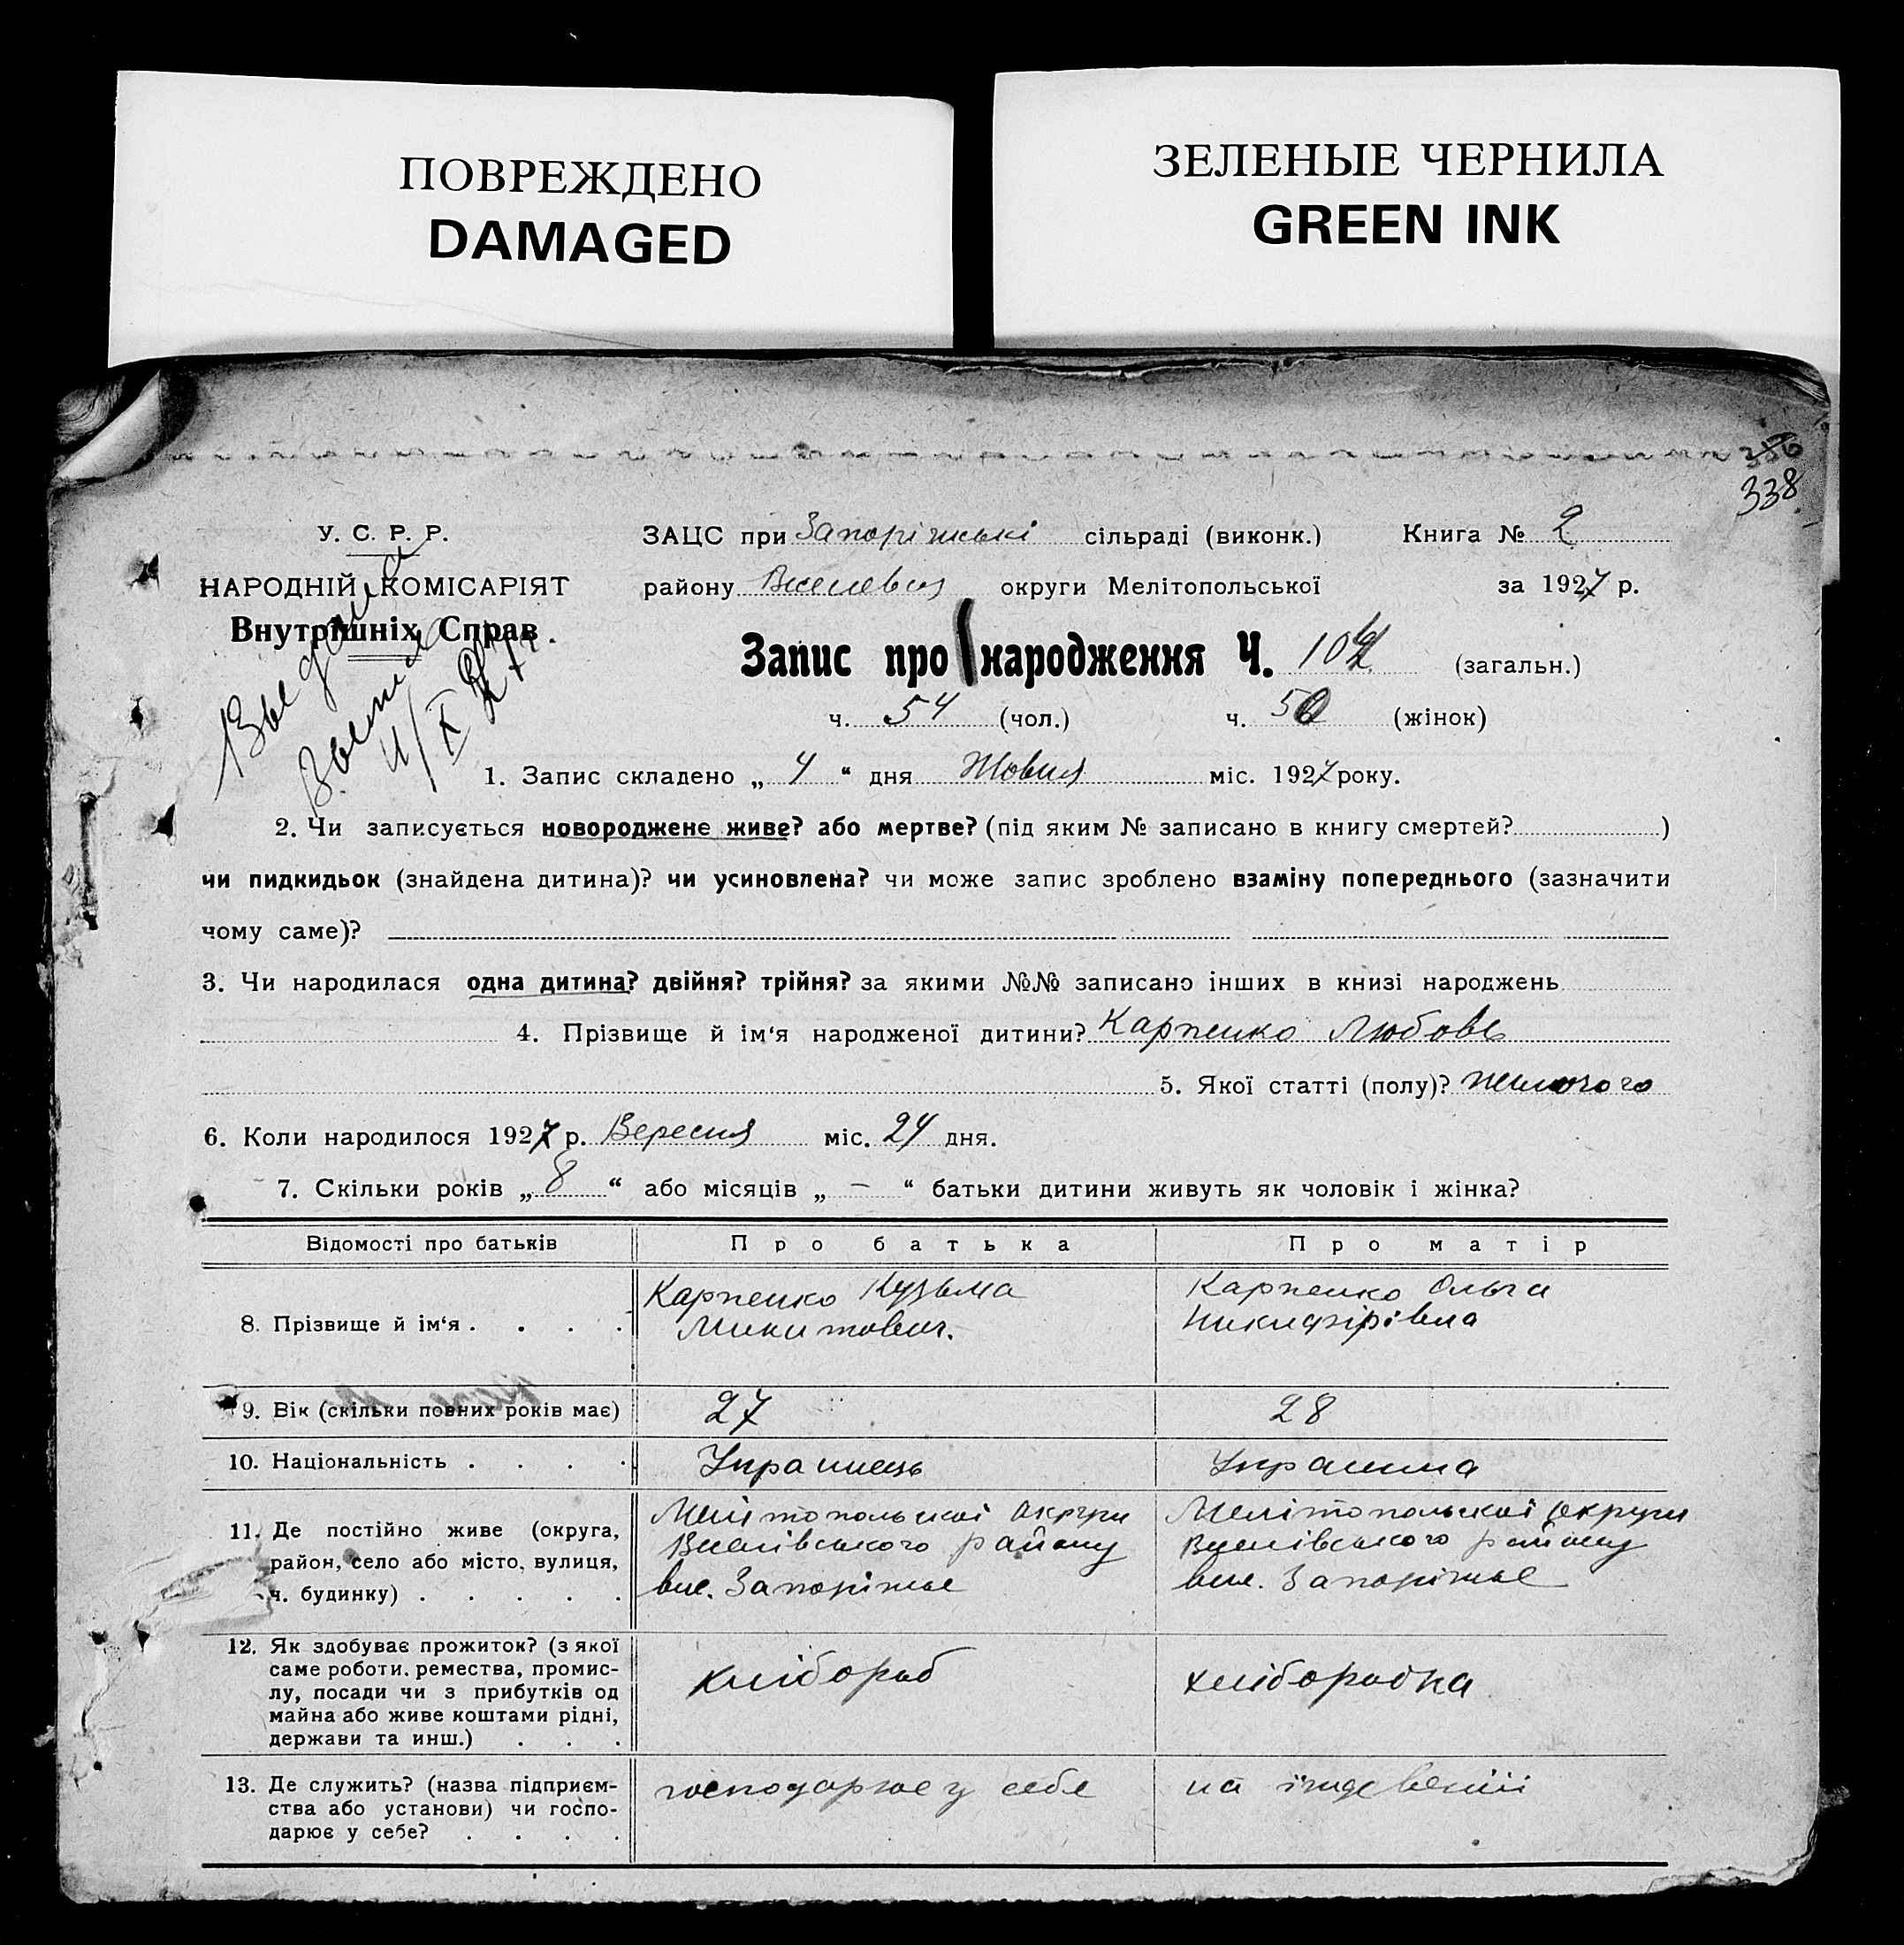 ПОВРЕЖДЕНО
DAMAGED
ЗЕЛЕНЫЕ ЧЕРНИЛА
GREEN INK
338
У. С. Р. Р.
НАРОДНІЙ КОМІСАРІЯТ
Внутрішніх Справ
ЗАЦС при Запоріжські сільраді (виконк.) Книга № 2
району округи Мелітопольської за 1927 р.
Запис про народження Ч. 104 (загальн.)
ч. 54 (чол.) ч. 50 (жінок)
1. Запис складено „ 4 “ дня Жовня міс. 1927 року.
2. Чи записується новороджене живе? або мертве? (під яким № записано в книгу смертей? )
чи пидкидьок (знайдена дитина)? чи усиновлена? чи може запис зроблено взаміну попереднього (зазначити
чому саме)?
3. Чи народилася одна дитина? двійня? трійня? за якими №№ записано інших в книзі народжень
4. Прізвище й ім‘я народженої дитини? Карпенко Любовь
5. Якої статті (полу)? жиночого
6. Коли народилося 1927 р. Вересня міс. 24 дня.
7. Скільки років „ 8 “ або місяців „ – “ батьки дитини живуть як чоловік і жінка?
Відомості про батьків Про батька Про матір
8. Прізвище й ім‘я . . . . Карпенко Кузьма Микитович. Карпенко Ольга Никифірівна
9. Вік (скільки повних років має) 27 28
10. Національність . . . . Українець Українка
11. Де постійно живе (округа, Мелітопольскої округи Мелітопольскої округи
район, село або місто, вулиця, Веселівського району Веселівського району
ч. будинку) . . . . . вис. Запоріжье вис. Запоріжье
12. Як здобуває прожиток? (з якої
саме роботи, ремества, промис-
лу, посади чи з прибутків од хлібороб хліборобка
майна або живе коштами рідні,
держави та инш.) . . .
13. Де служить? (назва підприєм- господарює у себе на іждевенії
ства або установи) чи госпо-
дарює у себе? . . . .